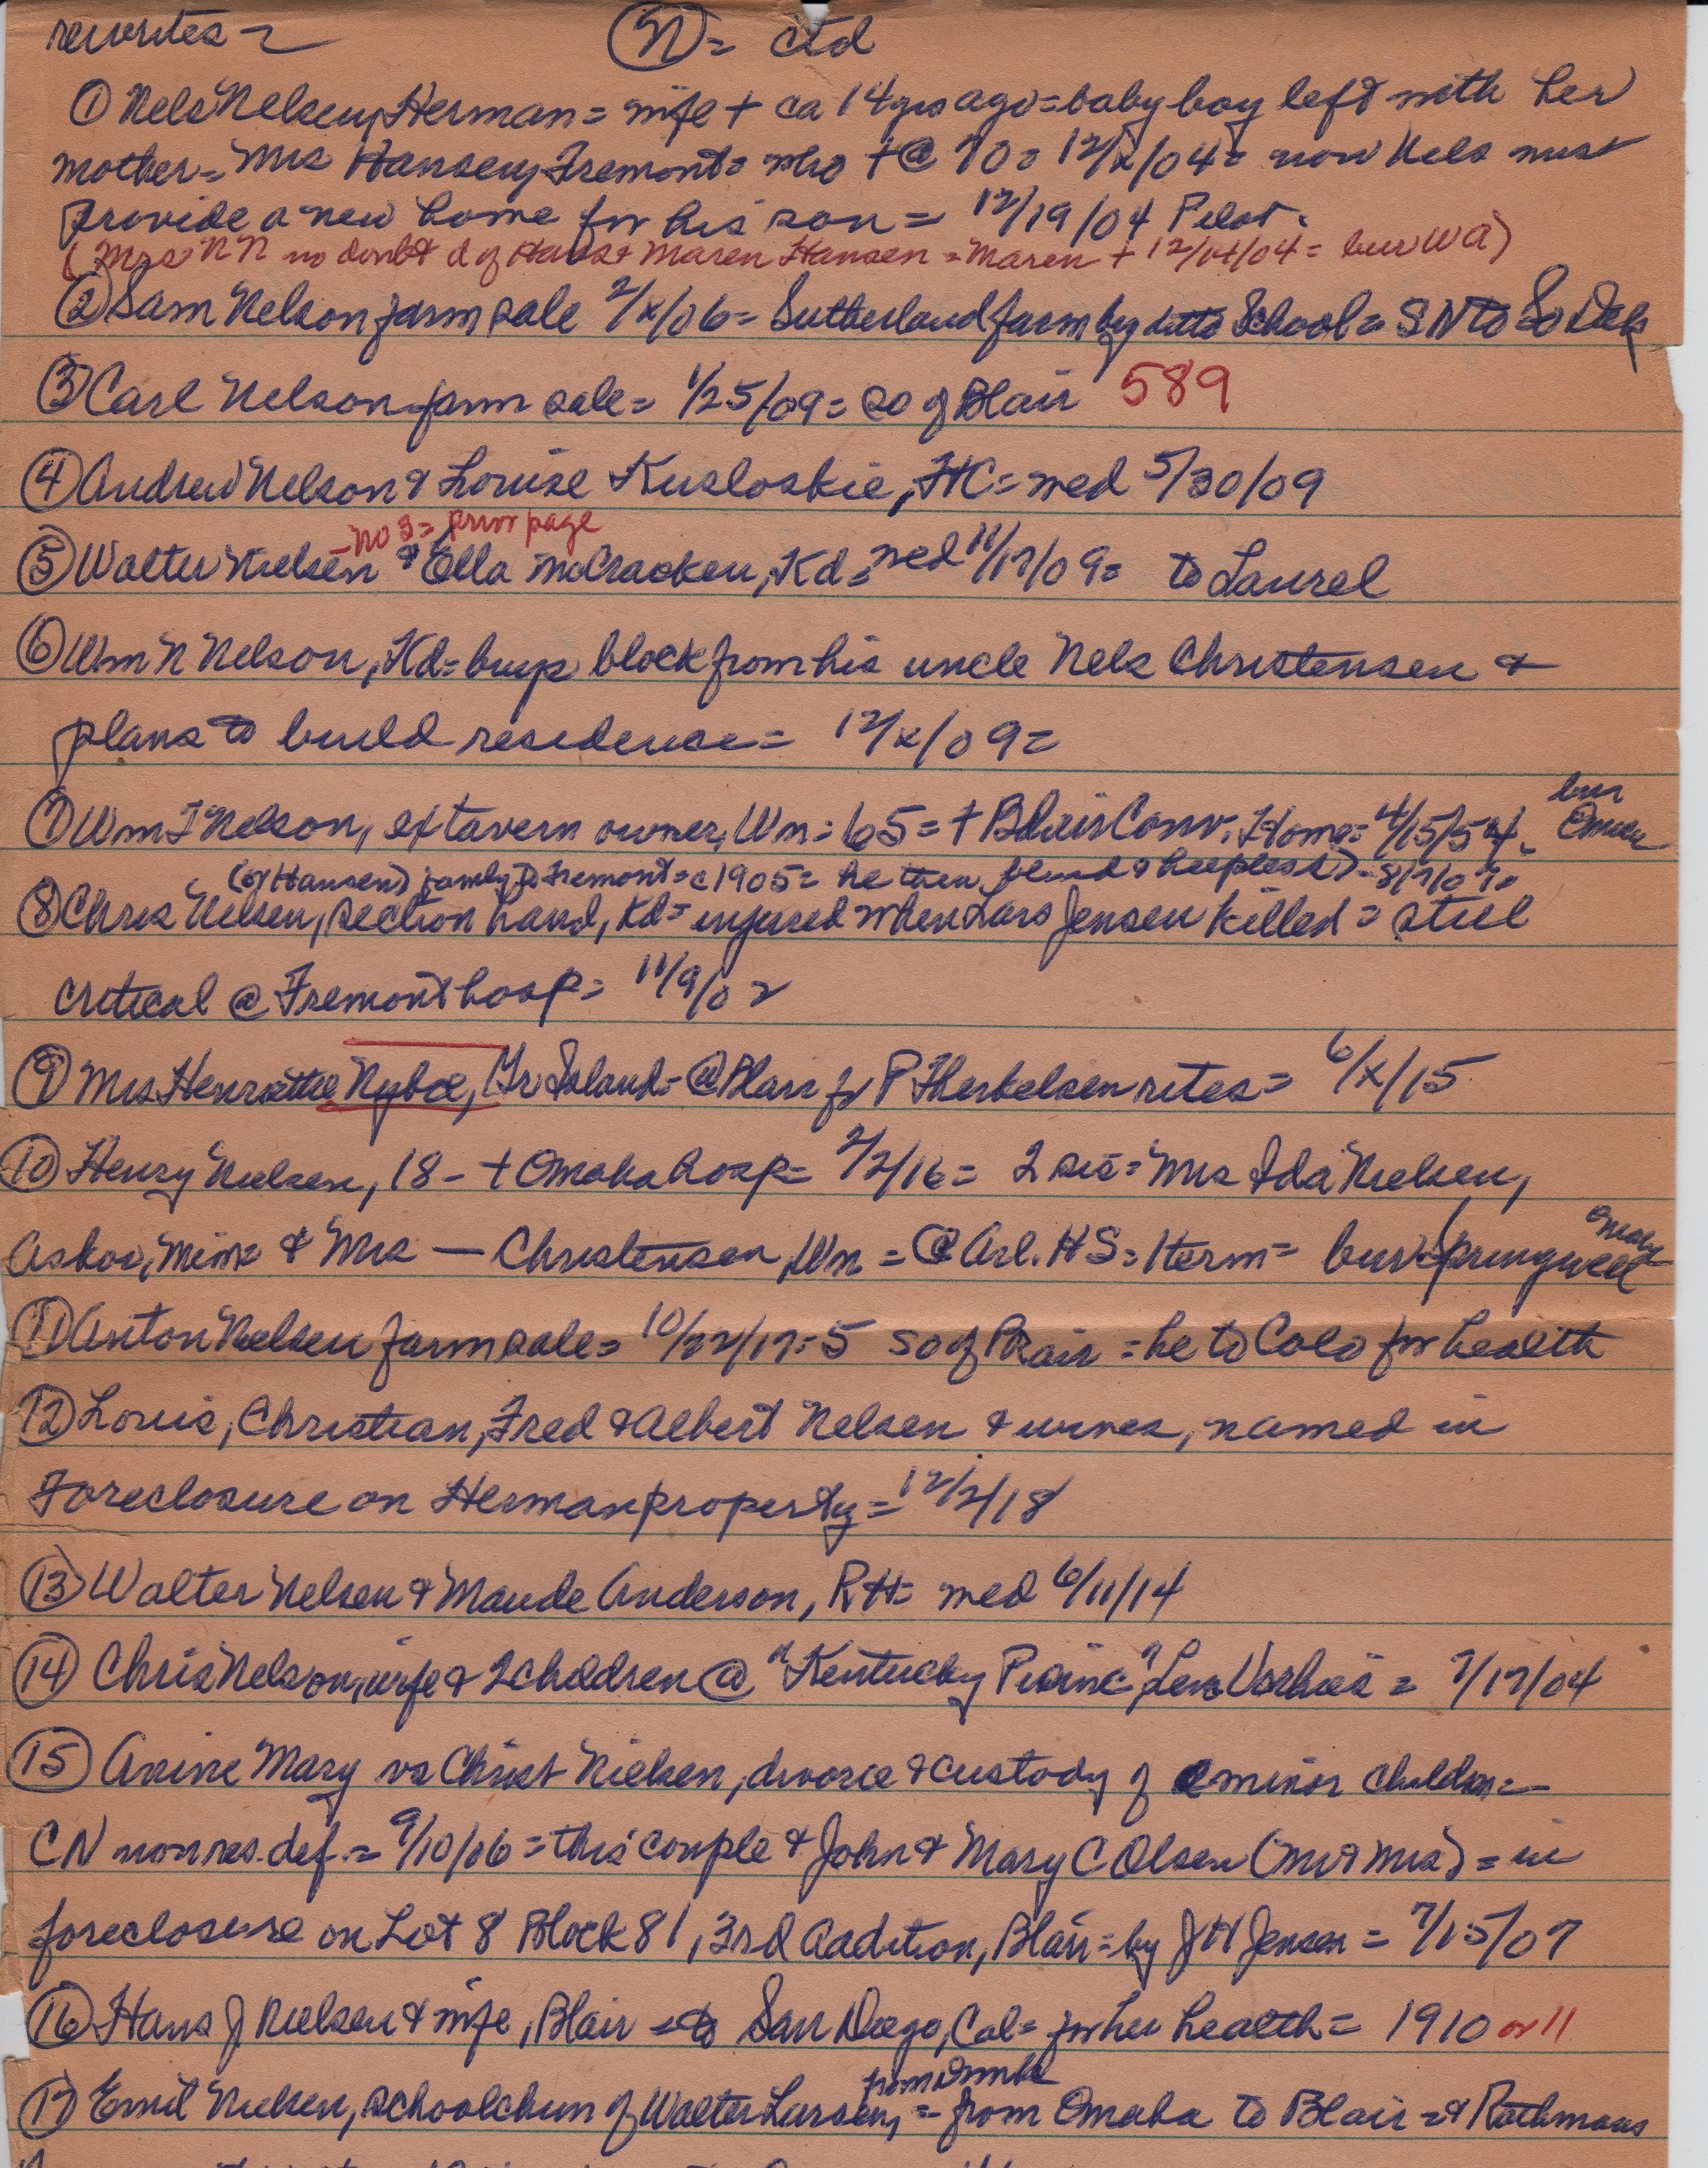 rewrites — (N) = ctd
① Nels Nelsen, Herman = wife + ca 14 yrs ago = baby boy left with her
mother = Mrs Hansen, Fremont = who + @ 70 = 12/x/04 = now Nels must
provide a new home for his son = 12/19/04 Pilot.
(Mrs NN no doubt d of Hans & Maren Hansen = Maren + 12/04/04 = bur WA)
② Sam Nelson farm sale 2/x/06 = Sutherland farm by ditto School = SN to So Dak
③ Carl Nelson farm sale = 1/25/09 = so of Blair 589
④ Andrew Nelson & Louise Kusloskie, FtC = med 5/30/09
- no 2 = prior page
⑤ Walter Nielsen & Ella McCracken, Kd = med 11/17/09 = to Laurel
⑥ Wm N Nelson, Kd = buys block from his uncle Nels Christensen &
plans to build residence = 12/x/09 =
bur
⑦ Wm F Nelson, ex tavern owner, Wn = 65 = + Blair Conv. Home = 4/15/54. Omaha
(or Hansen) family to Fremont = c1905 = he then blind & helpless) = 8/7/07 =
⑧ Chris Nelsen, section hand, Kd = injured when Lars Jensen killed = still
critical @ Fremont hosp = 11/9/02
⑨ Mrs Henriette Nyboe, Gr Island = @ Blair for P Therkelsen rites = 6/x/15
⑩ Henry Nielsen, 18 - + Omaha hosp = 2/2/16 = 2 sis = Mrs Ida Nielsen,
Askov, Minn & Mrs — Christensen, Wn = @ Arl. HS = 1 term = bur Springwell Omaha
⑪ Anton Nielsen farm sale = 10/22/17 = 5 so of Blair = he to Colo for health
⑫ Louis, Christian, Fred & Albert Nelsen & wives, named in
Foreclosure on Herman property = 12/2/18
⑬ Walter Nelsen & Maude Anderson, RH = med 6/11/14
⑭ Chris Nelson, wife & 2 children @ "Kentucky Picnic", Len Vorhies = 7/17/04
⑮ Anine Mary vs Christ Nielsen, divorce & custody of minor children =
CN nonres. def. = 9/10/06 = this couple & John & Mary C Olsen (Mr & Mrs) = in
foreclosure on Lot 8 Block 81, 3rd Addition, Blair = by J H Jensen = 7/15/07
⑯ Hans J Nielsen & wife, Blair = to San Diego, Cal = for her health = 1910 or 11
from
⑰ Emil Nielsen, schoolchum of Walter Larsen, = from Omaha to Blair = & Rathmans